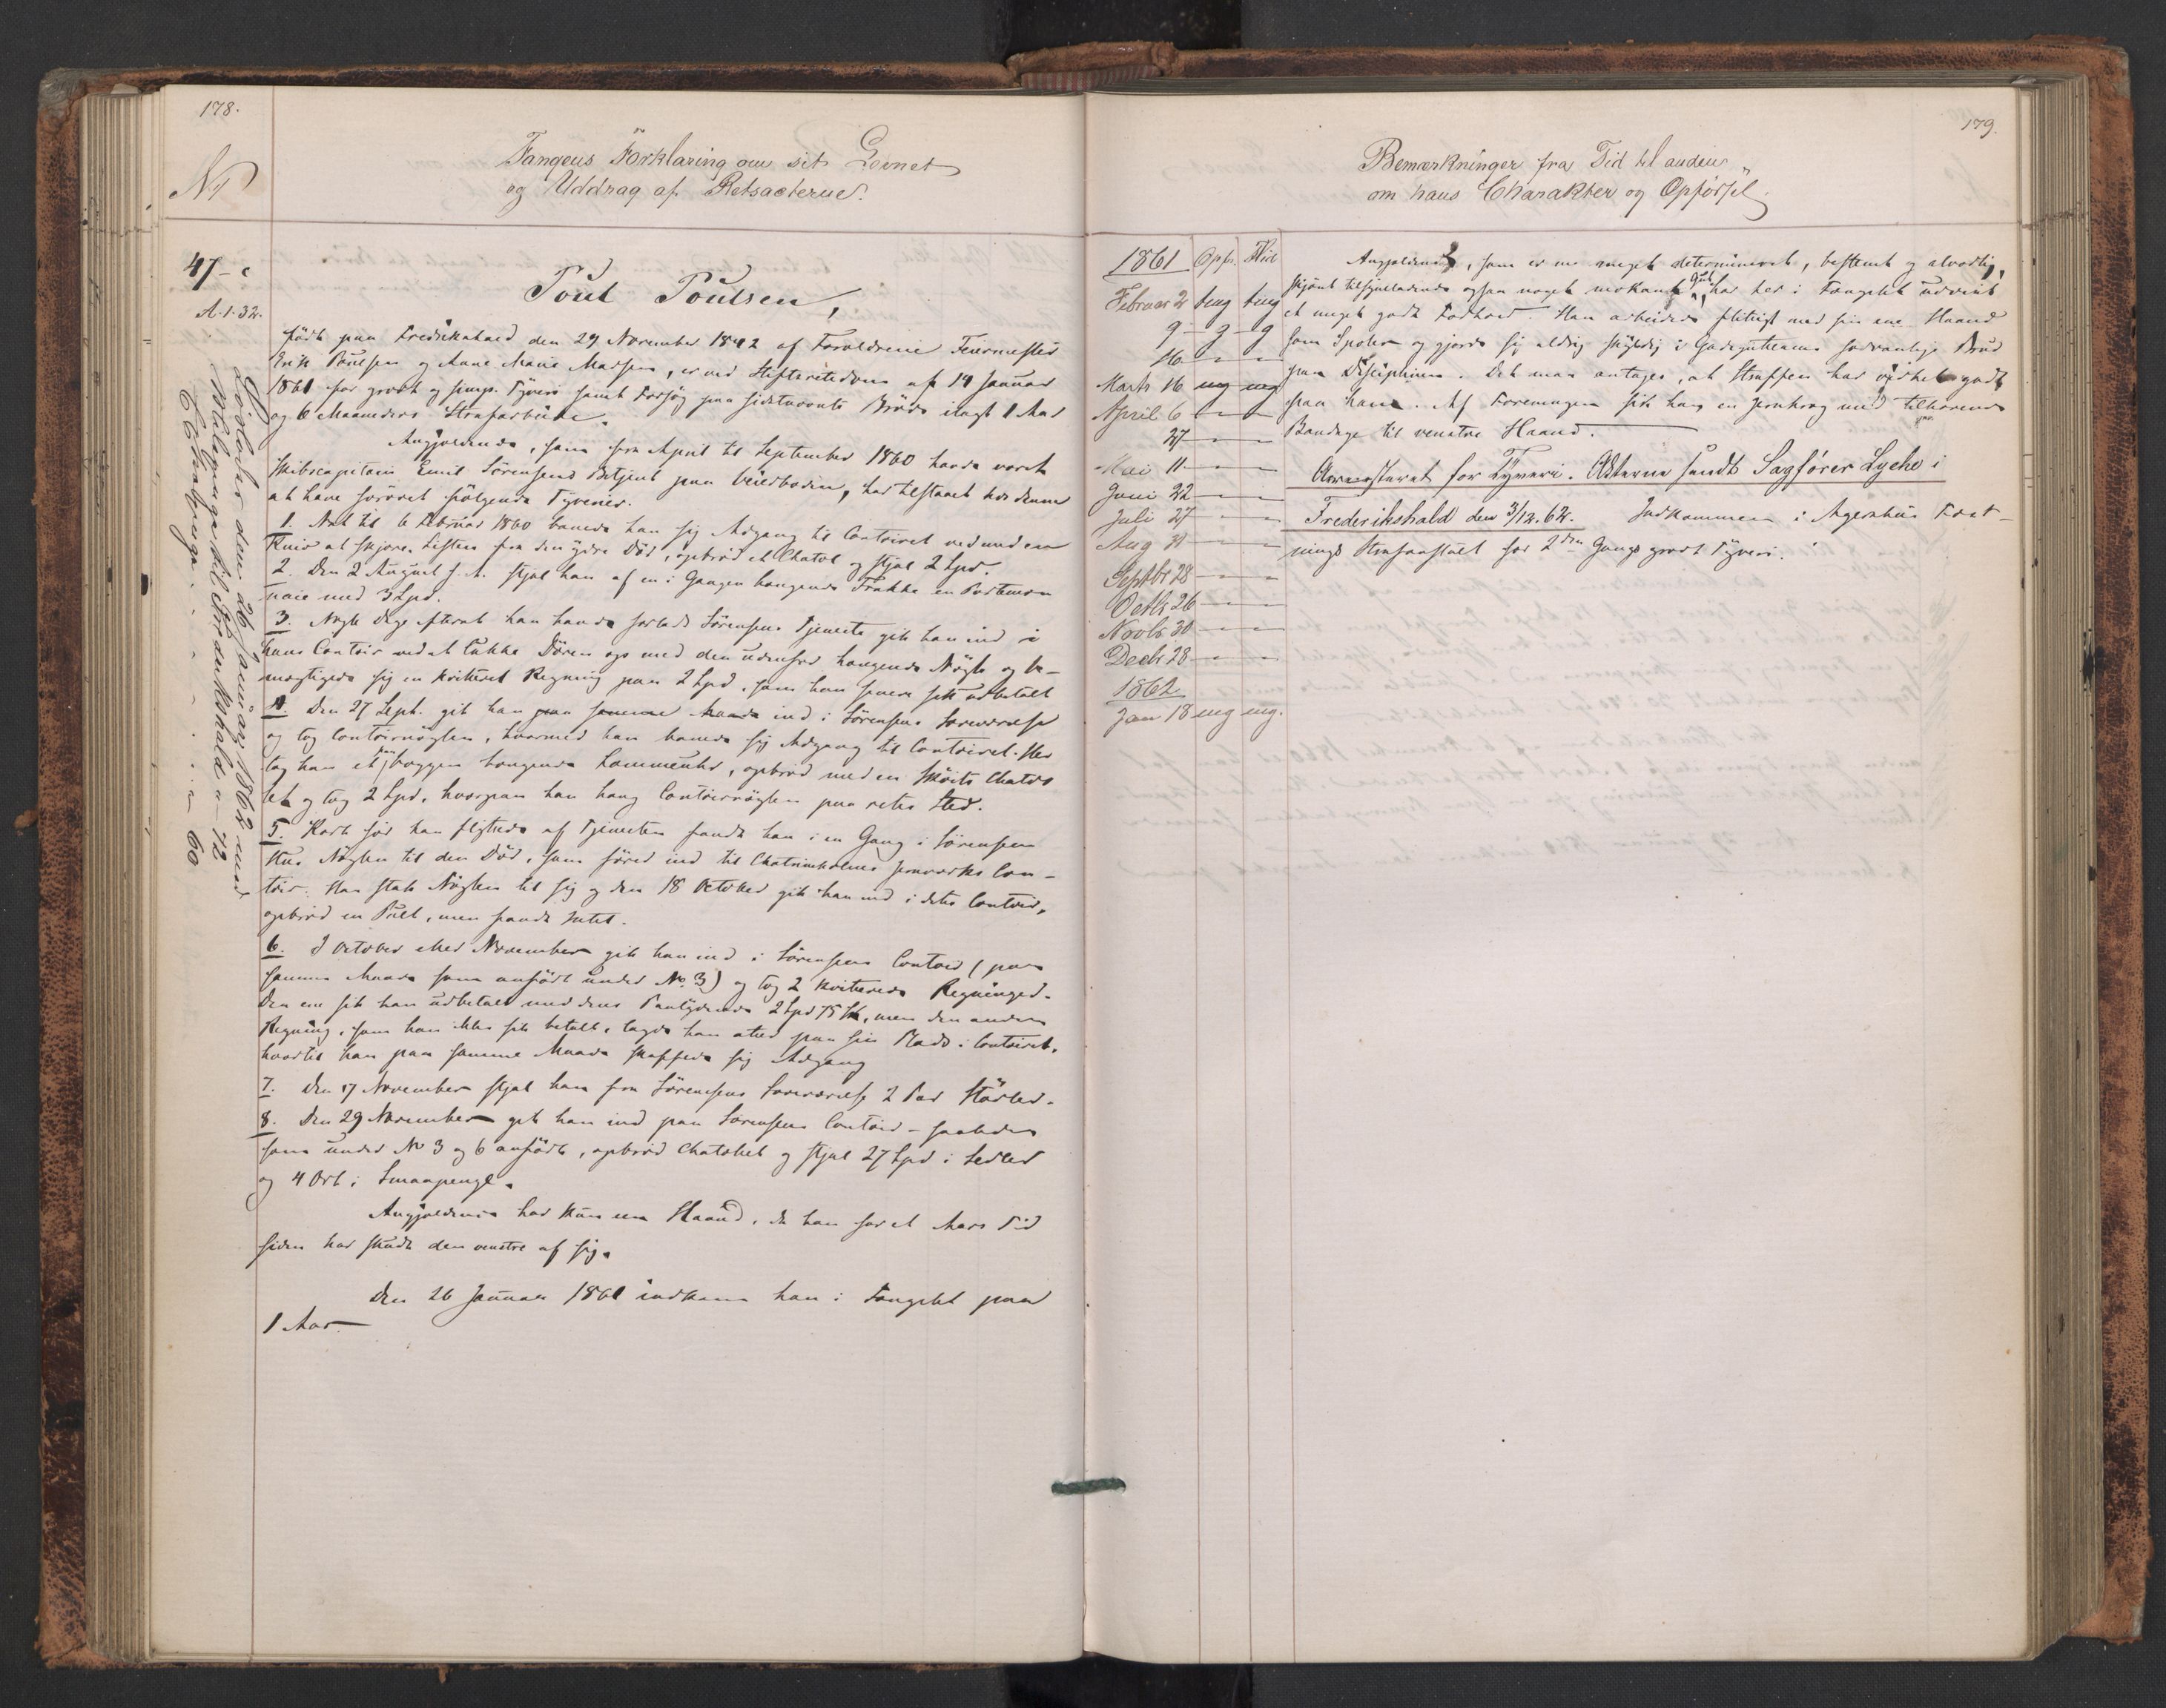 178.
No
Fangens Forklaring om sit Levnet
og Uddrag af Retsacterne.
47 - c
A. 1. 32.
Poul Poulsen,
født paa Fredrikshald den 29 November 1842 af Forældrene Feiermester
Erik Poulsen og Anne Marie Madsen, er ved Stiftsretsdom af 14 Januar
1861 for grovt og simp. Tyveri samt Forsøg paa sidstnævnte Brøde ilagt 1 Aar
og 6 Maaneders Strafarbeide.
Angjældende, som fra April til September 1860 havde været
Skibscapitain Emil Sørensens Betjent paa Veierboden, har tilstaaet hos denne
at have forøvet følgende Tyverier.
1. Nat til 6 Februar 1860 banede han sig Adgang til Contoiret ved med en
Kniv at skjære Listen fra den ydre Dør, opbrød et Chatol og stjal 2 Spd.
2. Den 2 August s. A. stjal han af en i Gangen hængende Frakke en Portemon
naie med 3 Spd.
3. Nogle Dage efterat han havde forladt Sørensens Tjeneste gik han ind i
hans Contoir ved at lukke Døren op med den udenfor hængende Nøgle og be-
mægtigede sig en kvitteret Regning paa 2 Spd, som han senere fik udbetalt
4. Den 27 Sept. gik han paa samme Maade ind i Sørensens Forværelse
og tog Contoirnøglen, hvormed han banede sig Adgang til Contoiret. Her
tog han et i Væggen hængende Lommeuhr, opbrød med en Skruv Chatol
let og tog 2 Spd, hvorpaa han hang Contoirnøglen paa rette Sted.
5. Kort før han flyttede af Tjenesten fandt han i en Gang i Sørensens
Hus Nøglen til den Dør, som fører ind til Chatrinholms Jernværks Con-
toir. Han stak Nøglen til sig og den 18 October gik han ind i dette Contoir,
opbrød en Pult, men fandt Intet.
6. I October eller November gik han ind i Sørensens Contoir (paa
samme Maade som anført under No 3) og tog 2 kvitterede Regninger.
Den ene fik han udbetalt med dens Paalydende 2 Spd 75 sk, men den anden
Regning, som han ikke fik betalt, lagde han atter paa sin Plads i Contoiret,
hvortil han paa samme Maade skaffede sig Adgang
7. Den 17 November stjal han fra Sørensens Forværelse 2 Par Støvler.
8. Den 29 November gik han ind paa Sørensens Contoir - saaledes
som under No 3 og 6 anført, opbrød Chatollet og stjal 27 Spd i Sedler
og 4 Ort i Smaapenge.
Angjældende har kun een Haand, da han for et Aars Tid
siden har skudt den venstre af sig.
Den 26 Januar 1861 indkom han i Fængslet paa
1 Aar
Løslades den 26 Januar 1862 med
Reisepenge til Fredrikshald 72
60
179.
Bemærkninger fra Tid til anden
om hans Charakter og Opførsel.
1861 Opfr. Flid
Februar 2 tmg tmg
9 - g - g
16 " "
Marts 16 mg mg
April 6 " "
27 " "
Mai 11 " "
Juni 22 " "
Juli 27 " "
Aug 31 " "
Septbr 28 " "
Octbr 26 " "
Novbr 30 " "
Decbr 28 " "
1862
Jan 18 mg mg.
Angjældende, som er en meget determineret, bestemt og alvorlig,
skjønt tilsyneladende ogsaa noget mokant Gut har her i Fængslet udviist
et meget godt Forhold. Han arbeidede flittigt med sin ene Haand
som Spoler og gjorde sig aldrig skyldig i Gadeguttenes sædvanlige Brud
paa Disciplinen. Det maa antages, at Straffen har virket godt
paa ham. Af Foreningen fik han en Jernkrog med tilhørende
Bandage til venstre Haand.
Arresteret for Tyveri. Acterne sendt Sagfører Lyche i
Frederikshald den 3/12. 62. Indkommen i Agershus Fæst-
nings Strafanstalt for 2den Gangs grovt Tyveri.